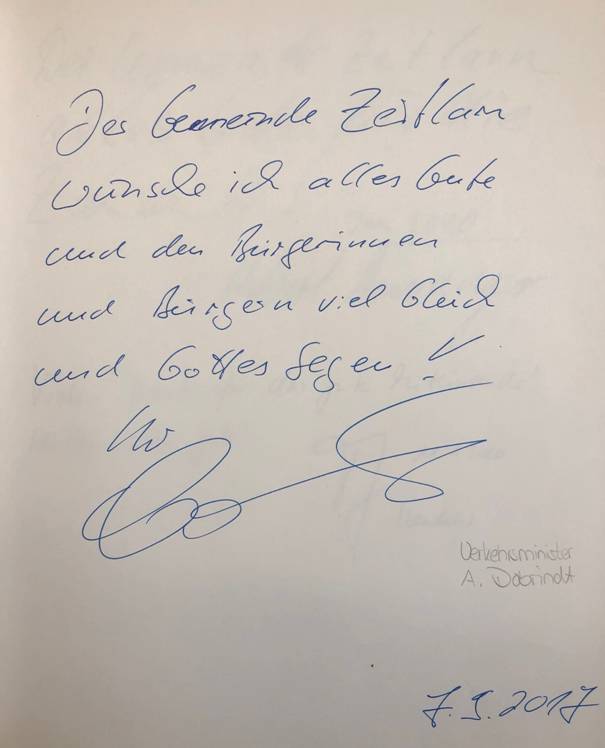 Der Gemeinde Zeitlarn
wünsche ich alles Gute
und den Bürgerinnen
und Bürgern viel Glück
und Gottes Segen !
Ihr
Verkehrsminister
A. Dobrindt
7.9.2017